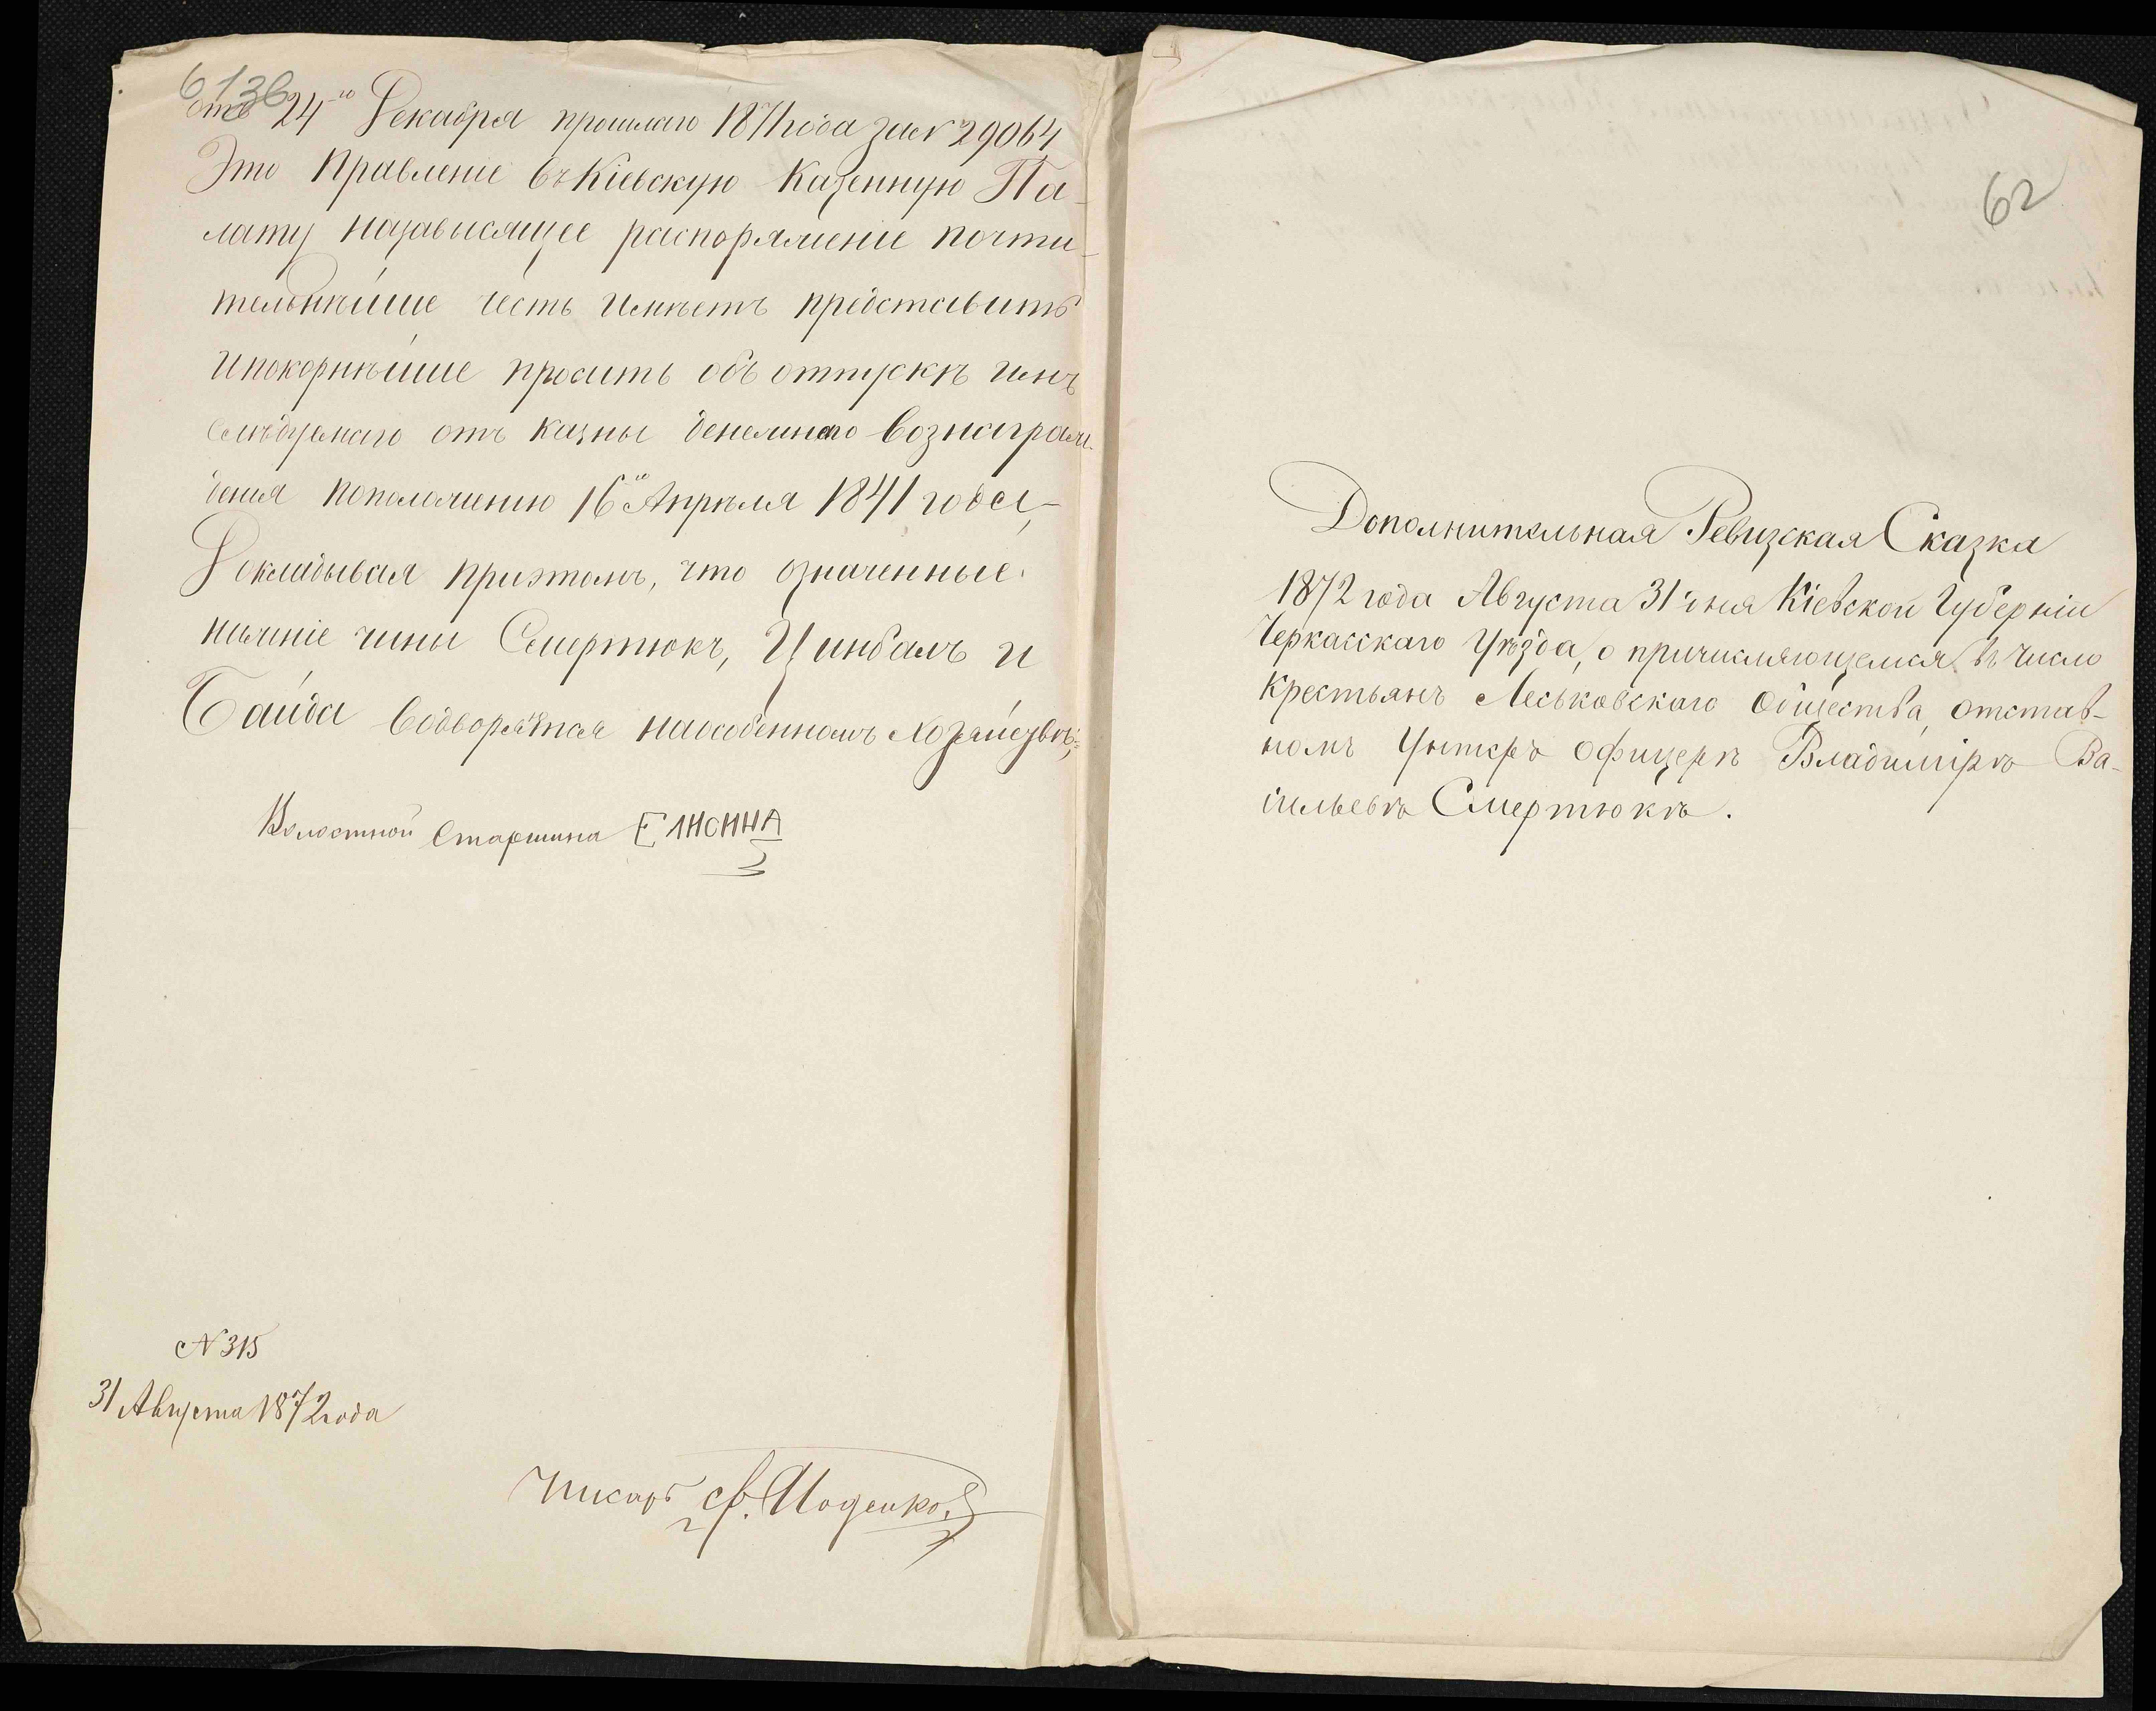 61зв
отъ 24го Декабря прошлаго 1871 года за № 29064
Это Правленіе въ Кіевскую Казенную Па-
лату назависящее распоряженіе почти-
тельнѣйше честь имѣетъ представить
и покорнѣйше просить объ отпускѣ имъ
слѣдуемаго отъ казны денежнаго вознаграж-
денія по положенію 16й Апрѣля 1841 года,-
Докладывая приэтомъ, что означенные
нижніе чины Смертюкъ, Цимбалъ и
Байда водворятся наособенномъ хозяйствѣ;
Волостной Старшина ЕЛИСИНА
№ 315
31 Августа 1872 года
Писарь
62
Дополнительная Ревизская Сказка
1872 года Августа 31 дня Кіевской Губерніи
Черкасскаго Уѣзда, о причисляющемся въ число
Крестьянъ Леськовскаго Общества, отстав-
номъ Унтеръ Офицерѣ Владимірѣ Ва-
сильевѣ Смертюкѣ.